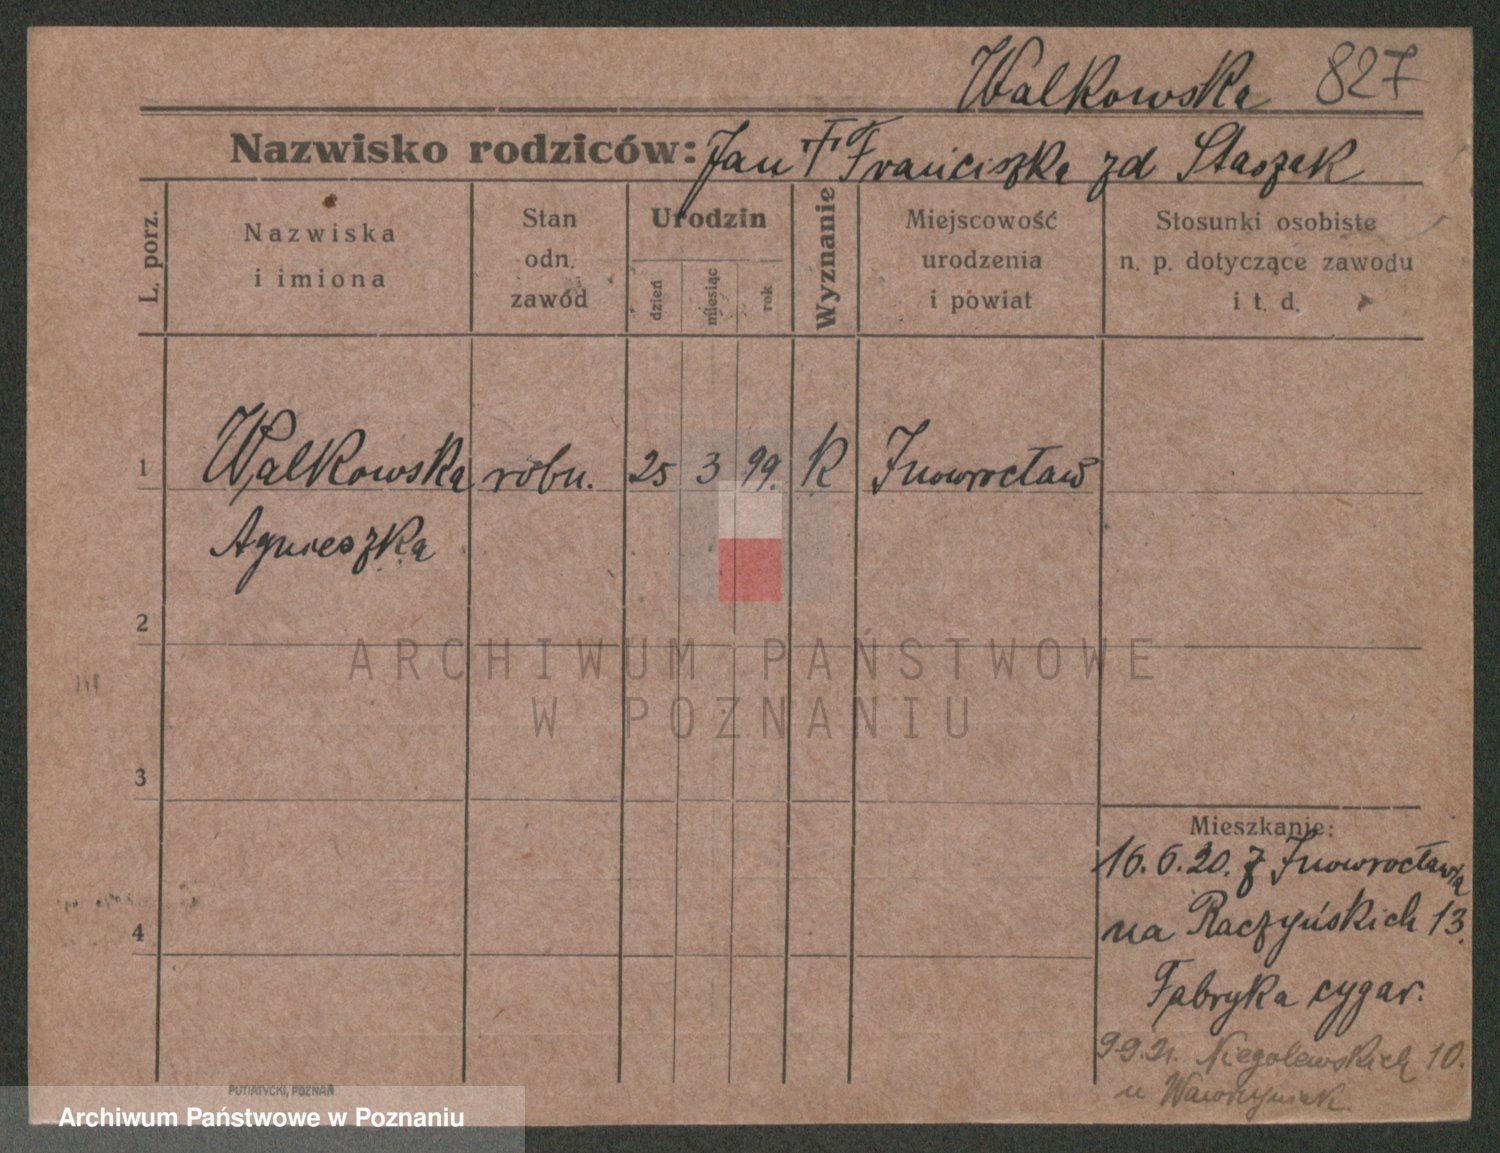 Walkowska 827
Nazwisko rodziców: Jan Franciszka zd Staszak
L. porz.
Nazwiska
i imiona
Stan
odn.
zawód
Urodzin
dzień
miesiąc
rok
Wyznanie
Miejscowość
urodzenia
i powiat
Stosunki osobiste
n. p. dotyczące zawodu
i t. d.
1 Walkowska robn. 25 3 99. K Inowrocław
Agnieszka
2
3
4
Mieszkanie:
16.6.20. z Inowrocławia
na Raczyńskich 13.
Fabryka cygar.
9.9.21. Niegolewskich 10.
u Wawrzyniak.
PUTIATYCKI, POZNAŃ
ARCHIWUM PAŃSTWOWE
W POZNANIU
Archiwum Państwowe w Poznaniu